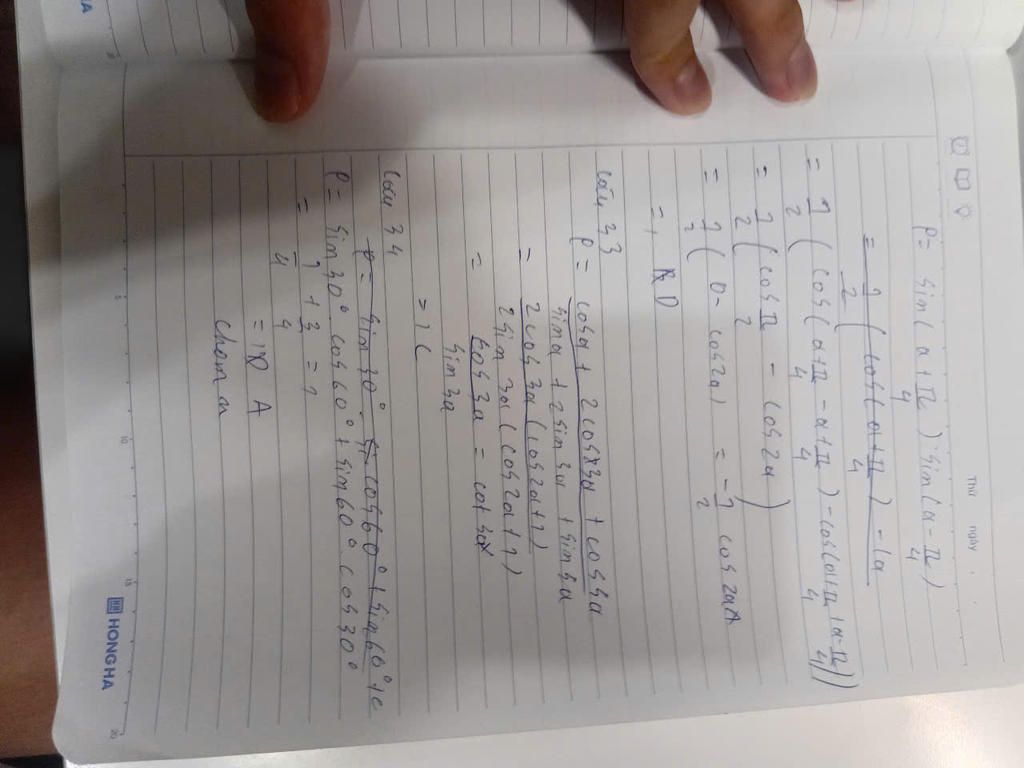 Thứ ngày
P = sin(a + π/4) · sin(a - π/4)
= 1/2 (cos(a + π/4) - (a
= 1/2 (cos(a + π/4 - a + π/4) - cos(a + π/4 + a - π/4))
= 1/2 (cos π/2 - cos 2a)
= 1/2 (0 - cos 2a) = -1/2 cos 2a
=> D
Câu 33
P = cos a + 2 cos 3a + cos 5a / sin a + 2 sin 3a + sin 5a
= 2 cos 3a (cos 2a + 1) / 2 sin 3a (cos 2a + 1)
= cos 3a / sin 3a = cot 3a
=> C
Câu 34
P = sin 30° cos 60° + sin 60° + c
P = sin 30° . cos 60° + sin 60° . cos 30°
= 1/4 + 3/4 = 1
=> A
chọn a
HONG HA